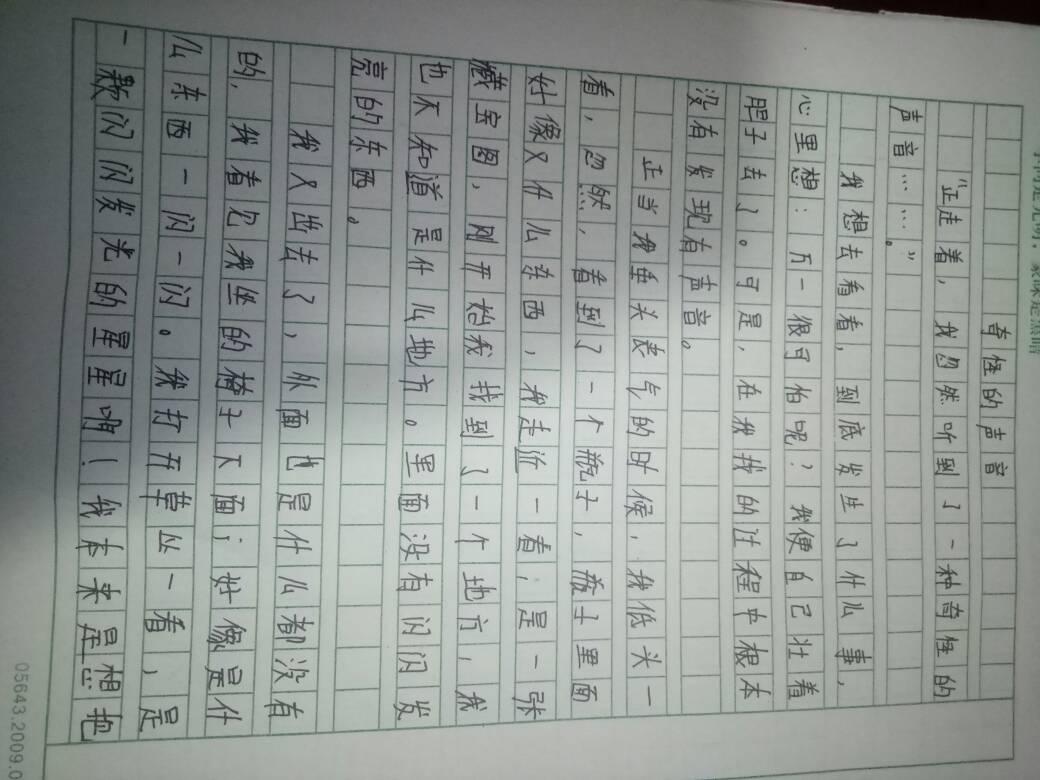 奇怪的声音
“正走着，我忽然听到了一种奇怪的
声音……。”
我想去看看，到底发生了什么事，
心里想：万一很可怕呢？我便自己壮着
胆子去了。可是，在我找的过程中根本
没有发现有声音。
正当我垂头丧气的时候，我低头一
看，忽然，看到了一个瓶子，瓶子里面
好像又什么东西，我走近一看，是一张
藏宝图，刚开始我找到了一个地方，我
也不知道是什么地方。里面没有闪闪发
亮的东西。
我又出去了，外面也是什么都没有
的，我看见我坐的椅子下面；好像是什
么东西一闪一闪。我打开草丛一看，是
一颗闪闪发光的星星啊！我本来是想把
05643.2009.0